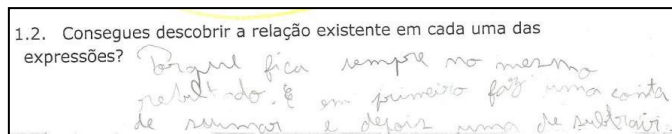 1.2. Consegues descobrir a relação existente em cada uma das
expressões? Porque fica sempre no mesmo
rebultado. E em primeiro faz uma conta
de soumar e depois uma de subtrair